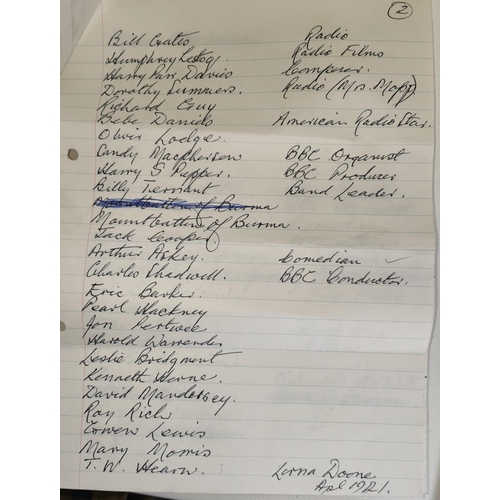 2
Bill Gates Radio
Humphrey Radio Films
Harry Parr Davis Composer.
Dorothy Summers. Radio (Mrs. Mopp)
Richard Guy
Bebe Daniels American Radio Star.
Oliver Lodge.
Sandy Macpherson BBC Organist
Harry S Pepper. BBC Producer
Billy Ternant Band Leader.
Mountbatten of Burma
Mountbatten of Burma.
Jack Cooper
Arthur Askey. Comedian
Charles Shadwell. BBC Conductor.
Eric Barker.
Pearl Hackney
Jon Pertwee
Harold Warrender
Leslie Bridgment
Kenneth Horne.
David Manderssy.
Roy Rich
Lewis
Mary Morris
T. W. Hearn. Lorna Doone
Apl 1921.